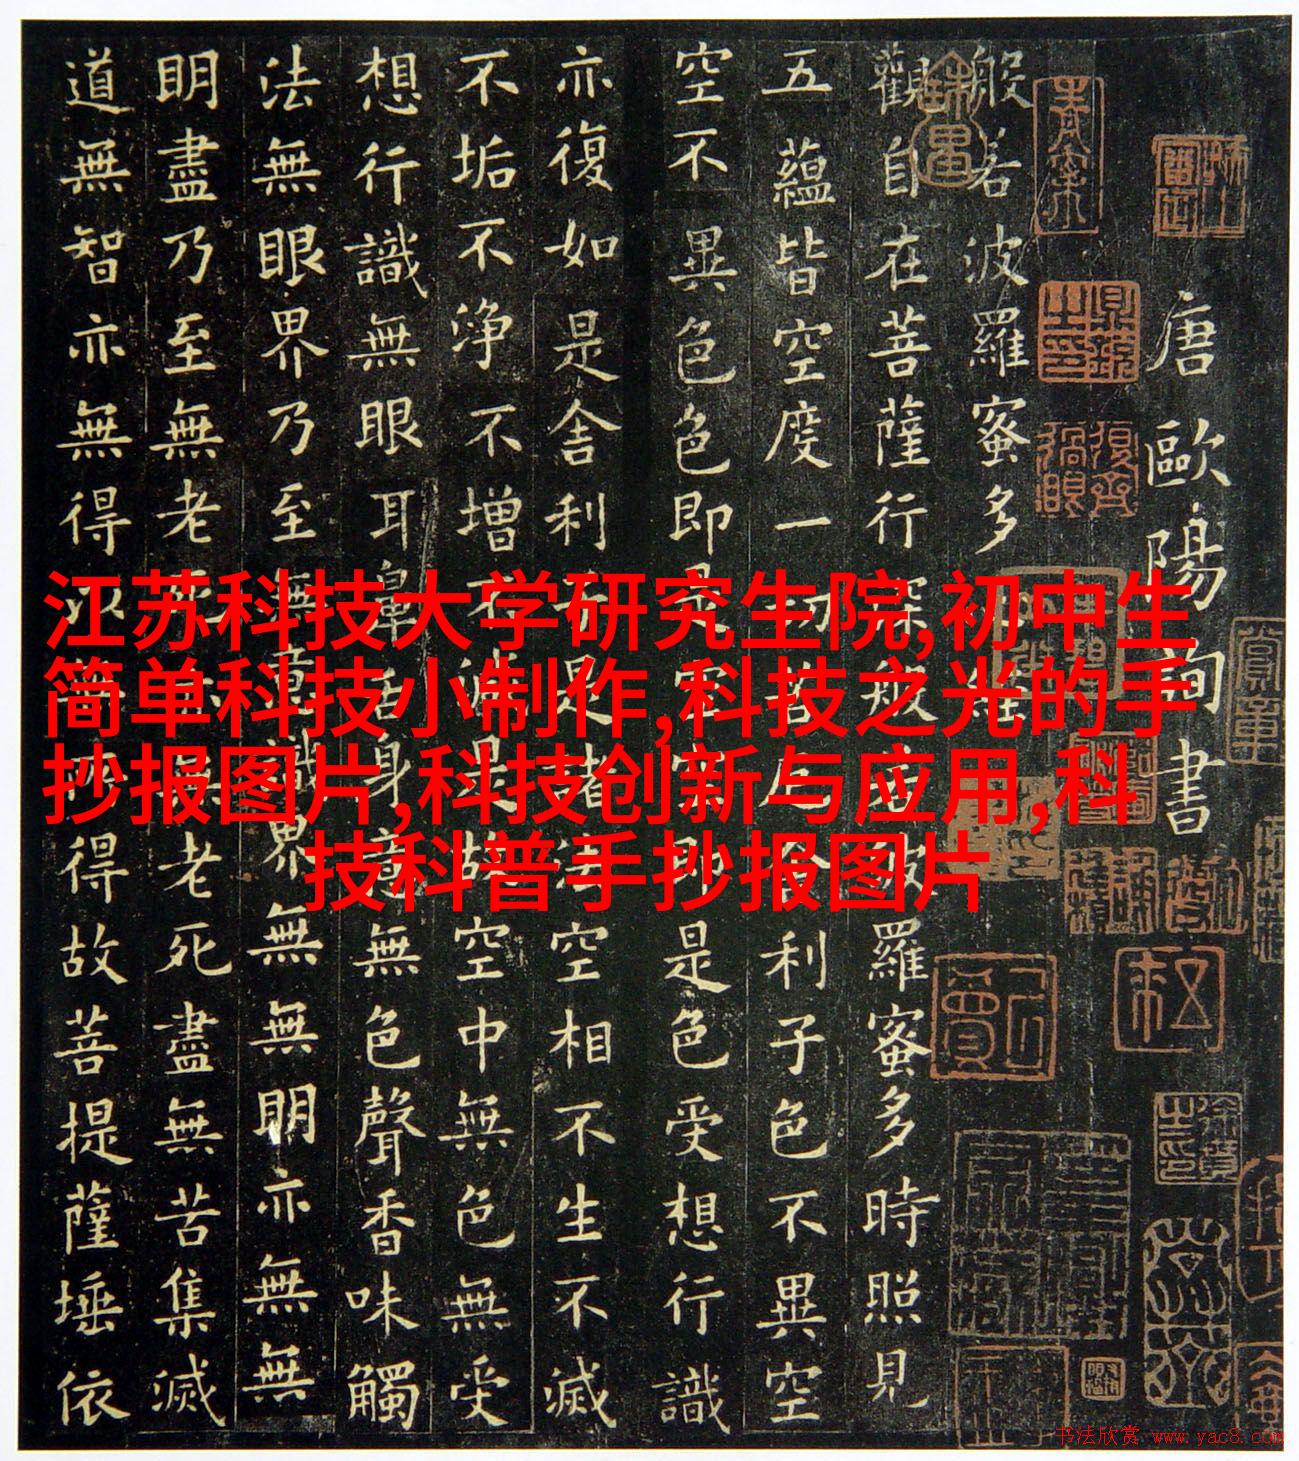 唐歐陽詢書
般若波羅蜜多心經
觀自在菩薩行深般若波羅蜜多時照見
五蘊皆空度一切苦厄舍利子色不異空
空不異色色即是空空即是色受想行識
亦復如是舍利子是諸法空相不生不滅
不垢不淨不增不減是故空中無色無受
想行識無眼耳鼻舌身意無色聲香味觸
法無眼界乃至無意識界無無明亦無無
明盡乃至無老死亦無老死盡無苦集滅
道無智亦無得以無所得故菩提薩埵依
江苏科技大学研究生院,初中生
简单科技小制作,科技之光的手
抄报图片,科技创新与应用,科
技科普手抄报图片
书法欣赏 www.yac8.com